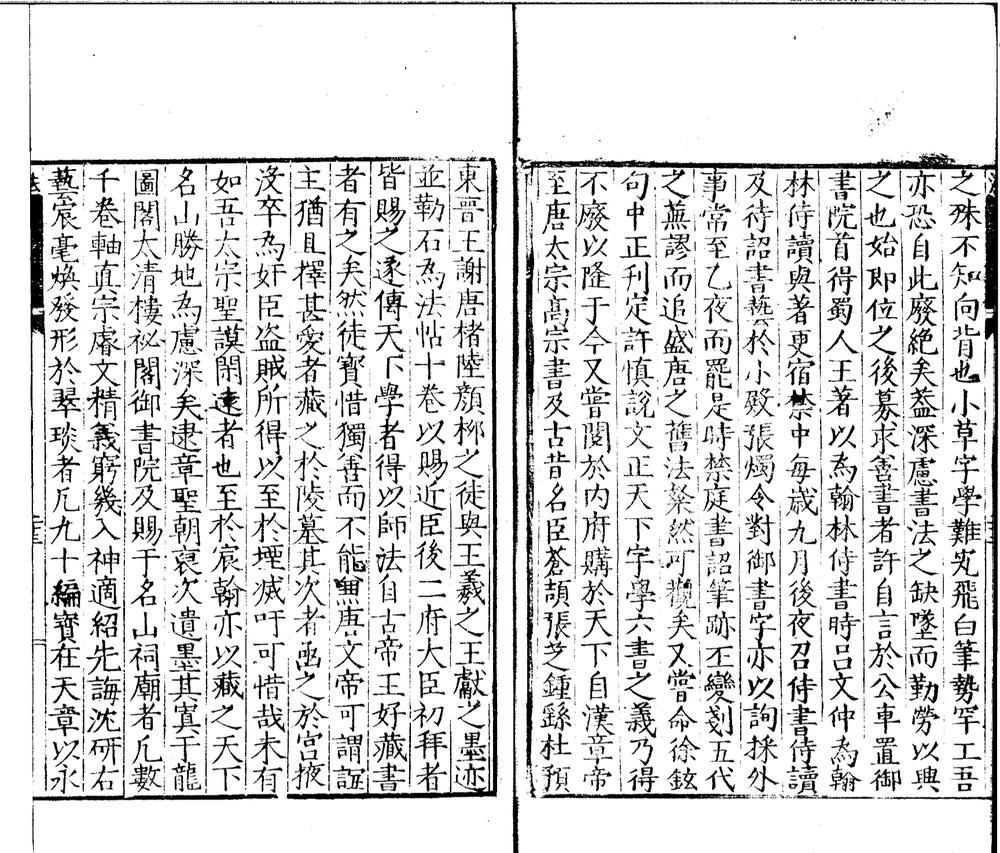 之殊不知向背也小草字學難究飛白筆勢罕工吾
亦恐自此廢絶矣葢深慮書法之缺墜而勤勞以興
之也始即位之後募求善書者許自言於公車置御
書院首得蜀人王著以為翰林侍書時吕文仲為翰
林侍讀與著更宿禁中每歲九月後夜召侍書侍讀
及待詔書藝於小殿張燭令對御書字亦以詢採外
事常至乙夜而罷是時禁庭書詔筆跡丕變剗五代
之蕪謬而追盛唐之舊法粲然可觀矣又嘗命徐鉉
句中正刋定許慎說文正天下字學六書之義乃得
不廢以隆于今又嘗閱於内府購於天下自漢章帝
至唐太宗髙宗書及古昔名臣蒼頡張芝鍾繇杜預
東晉王謝唐褚陸顔柳之徒與王羲之王獻之墨迹
並勒石為法帖十卷以賜近臣後二府大臣初拜者
皆賜之遂傳天下學者得以師法自古帝王好藏書
者有之矣然徒寳惜獨善而不能無唐文帝可謂誼
主猶且擇甚愛者藏之於陵墓其次者凾之於宫掖
沒卒為奸臣盗賊所得以至於堙滅吁可惜哉未有
如吾太宗聖謨閎逺者也至於宸翰亦以藏之天下
名山勝地為慮深矣逮章聖朝裒次遺墨其寘于龍
圖閣太清樓祕閣御書院及賜于名山祠廟者凡數
千卷軸真宗睿文精義窮幾入神適紹先誨沈研右
藝宸毫煥發形於翠琰者凡九十編寳在天章以永